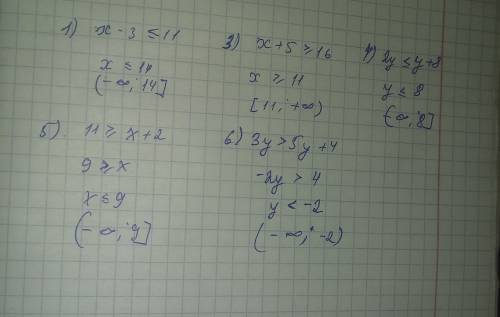 1) x - 3 ≤ 11
x ≤ 14
(-∞; 14]
3) x + 5 ≥ 16
x ≥ 11
[11; +∞)
4) 2y ≤ y + 8
y ≤ 8
(-∞; 8]
5) 11 ≥ x + 2
9 ≥ x
x ≤ 9
(-∞; 9]
6) 3y > 5y + 4
-2y > 4
y < -2
(-∞; -2)